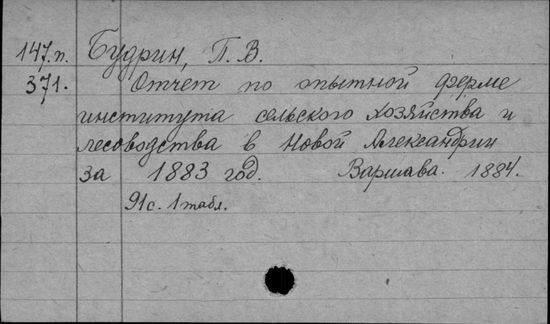 147.п. Будрин, П. В.
371. Отчет по опытной ферме
института сельского хозяйства и
лесоводства в Новой Александрии
за 1883 год. Варшава. 1884.
91 с. 1 табл.